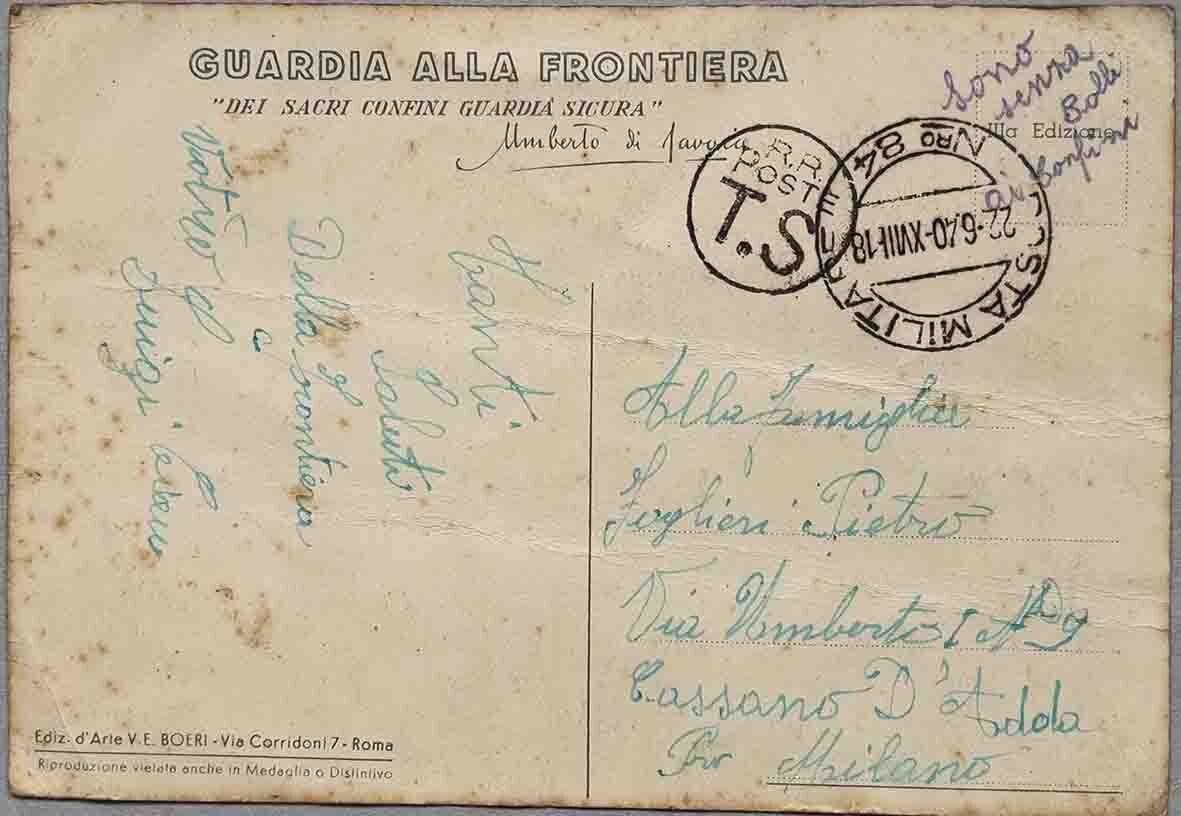 GUARDIA ALLA FRONTIERA
"DEI SACRI CONFINI GUARDIA SICURA"
Umberto di Savoia
Sono
senza
Bolli
ai Confini
IIIa Edizione
R.R.
POST
T.S
POSTA MILITARE
Nro 84
22-6.40-XVIII-18
Tanti
Saluti
Della frontiera
Vostro
Luigi
Alla Famiglia
Foglieni Pietro
Via Umberto I No 9
Cassano D'Adda
Pro Milano
Ediz. d'Arte V. E. BOERI - Via Corridoni 7 - Roma
Riproduzione vietata anche in Medaglia o Distintivo